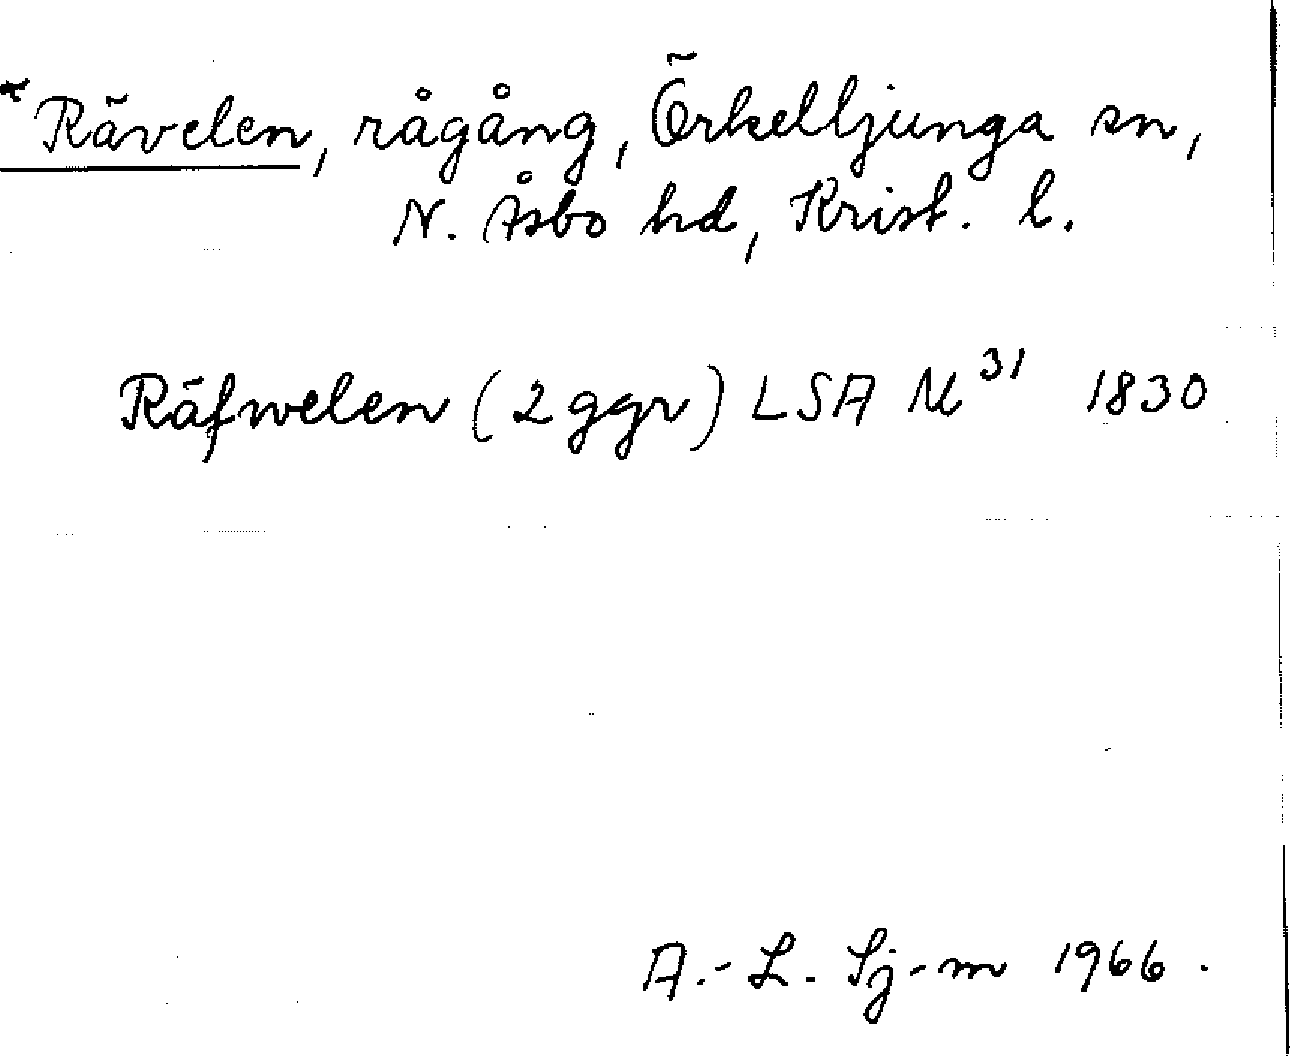 *Rävelen, rågång, Örkelljunga sn,
N. Åsbo hd, Krist. l.
Räfwelen (2 ggr) LSA M³¹ 1830
A.-L. Sj-m 1966.